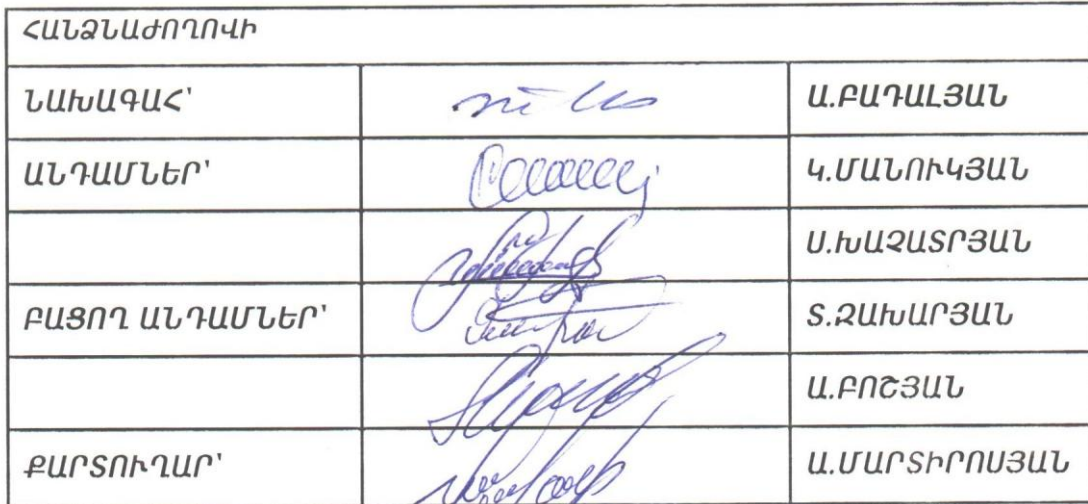 ՀԱՆՁՆԱԺՈՂՈՎԻ
ՆԱԽԱԳԱՀ՝ Ա.ԲԱԴԱԼՅԱՆ
ԱՆԴԱՄՆԵՐ՝ Կ.ՄԱՆՈՒԿՅԱՆ
Ս.ԽԱՉԱՏՐՅԱՆ
ԲԱՑՈՂ ԱՆԴԱՄՆԵՐ՝ Տ.ԶԱԽԱՐՅԱՆ
Ա.ԲՈՇՅԱՆ
ՔԱՐՏՈՒՂԱՐ՝ Ա.ՄԱՐՏԻՐՈՍՅԱՆ